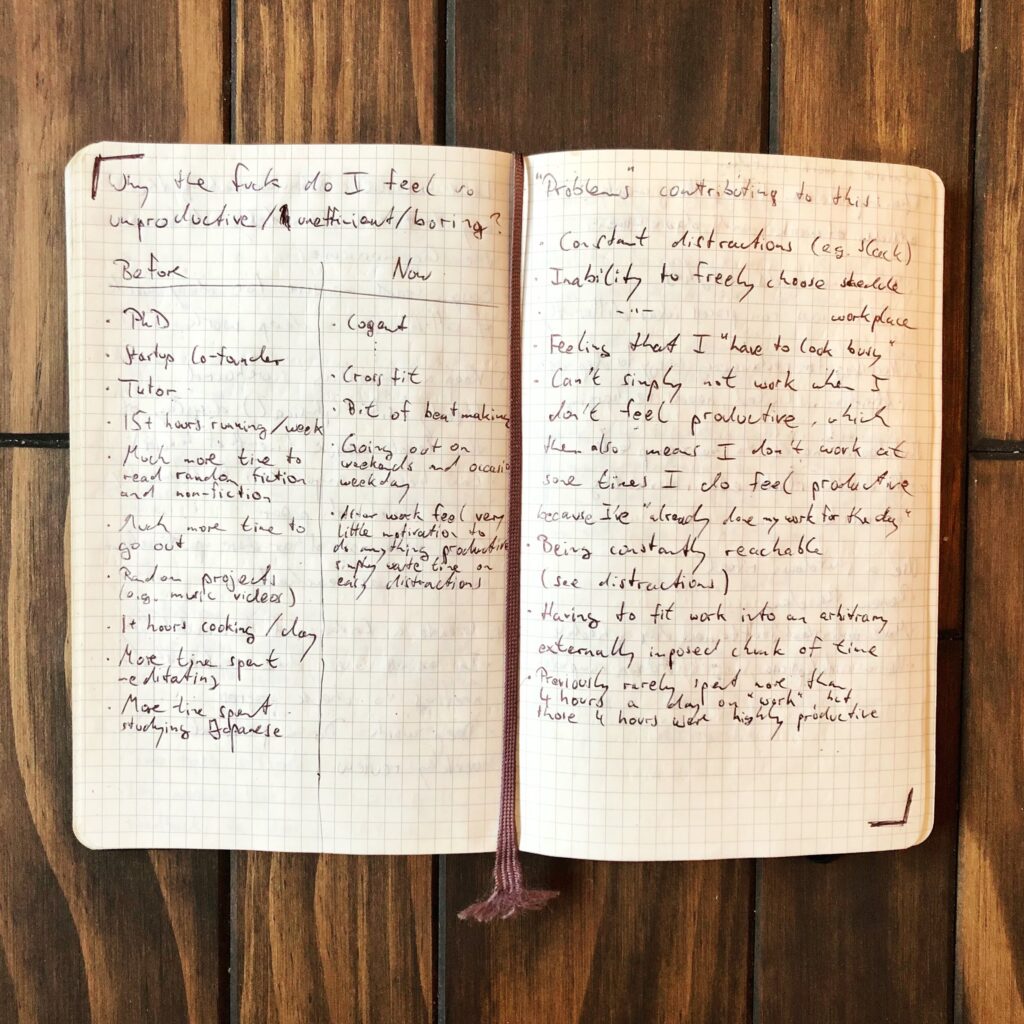 Why the fuck do I feel so
unproductive/unefficient/boring?
Before
· PhD
· Startup Co-founder
· Tutor
· 15+ hours running/week
· Much more time to
read random fiction
and non-fiction
· Much more time to
go out
· Random projects
(e.g. music videos)
· 1+ hours cooking/day
· More time spent
meditating
· More time spent
studying Japanese
Now
· Cogent
⋮
· Crossfit
· Bit of beatmaking
· Going out on
weekends and occasio
weekday
· After work feel very
little motivation to
do anything productive
simply waste time on
easy distractions
"Problems" contributing to this:
· Constant distractions (e.g. Slack)
· Inability to freely choose schedule
· -"- workplace
· Feeling that I "have to look busy"
· Can't simply not work when I
don't feel productive, which
then also means I don't work at
some times I do feel productive
because I've "already done my work for the day"
· Being constantly reachable
(see distractions)
· Having to fit work into an arbitrary
externally imposed chunk of time
· Previously rarely spent more than
4 hours a day on "work" but
those 4 hours were highly productive